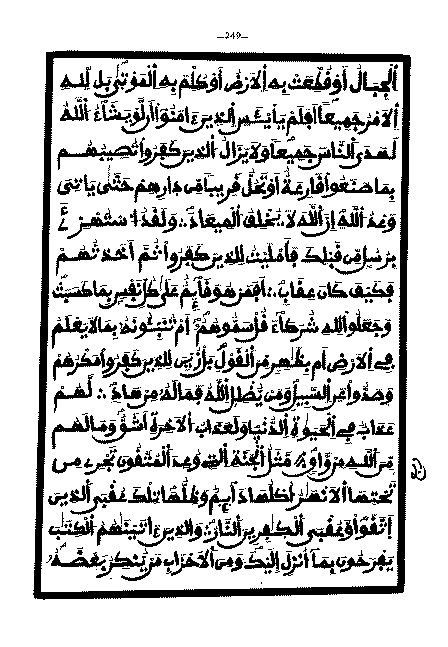 —249—
الْجِبَالُ أَوْ قُطِّعَتْ بِهِ الْأَرْضُ أَوْ كُلِّمَ بِهِ الْمَوْتَىٰ بَل لِّلهِ
الْأَمْرُ جَمِيعًا أَفَلَمْ يَايْـَٔسِ الذِينَ ءَامَنُوا أَن لَّوْ يَشَاءُ اللَّهُ
لَهَدَى النَّاسَ جَمِيعًا وَلَا يَزَالُ الذِينَ كَفَرُوا تُصِيبُهُم
بِمَا صَنَعُوا قَارِعَةٌ أَوْ تَحُلُّ قَرِيبًا مِّن دَارِهِمْ حَتَّىٰ يَاتِيَ
وَعْدُ اللَّهِ إِنَّ اللَّهَ لَا يُخْلِفُ الْمِيعَادَ وَلَقَدُ اسْتُهْزِئَ
بِرُسُلٍ مِّن قَبْلِكَ فَأَمْلَيْتُ لِلذِينَ كَفَرُوا ثُمَّ أَخَذتُّهُمْ
فَكَيْفَ كَانَ عِقَابِ أَفَمَنْ هُوَ قَائِمٌ عَلَىٰ كُلِّ نَفْسٍ بِمَا كَسَبَتْ
وَجَعَلُوا لِلهِ شُرَكَاءَ قُلْ سَمُّوهُمْ أَمْ تُنَبِّـُٔونَهُ بِمَا لَا يَعْلَمُ
فِي الْأَرْضِ أَم بِظَاهِرٍ مِّنَ الْقَوْلِ بَلْ زُيِّنَ لِلذِينَ كَفَرُوا مَكْرُهُمْ
وَصَدُّوا عَنِ السَّبِيلِ وَمَن يُضْلِلِ اللَّهُ فَمَا لَهُ مِنْ هَادٍ لَّهُمْ
عَذَابٌ فِي الْحَيَوٰةِ الدُّنْيَا وَلَعَذَابُ الْآخِرَةِ أَشَقُّ وَمَا لَهُم
مِّنَ اللَّهِ مِنْ وَّاقٍ مَّثَلُ الْجَنَّةِ التِي وُعِدَ الْمُتَّقُونَ تَجْرِي مِن
تَحْتِهَا الْأَنْهَٰرُ أُكُلُهَا دَائِمٌ وَظِلُّهَا تِلْكَ عُقْبَى الذِينَ
اتَّقَوا وَّعُقْبَى الْكَٰفِرِينَ النَّارُ وَالذِينَ ءَاتَيْنَٰهُمُ الْكِتَٰبَ
يَفْرَحُونَ بِمَا أُنزِلَ إِلَيْكَ وَمِنَ الْأَحْزَابِ مَنْ يُّنكِرُ بَعْضَهُ